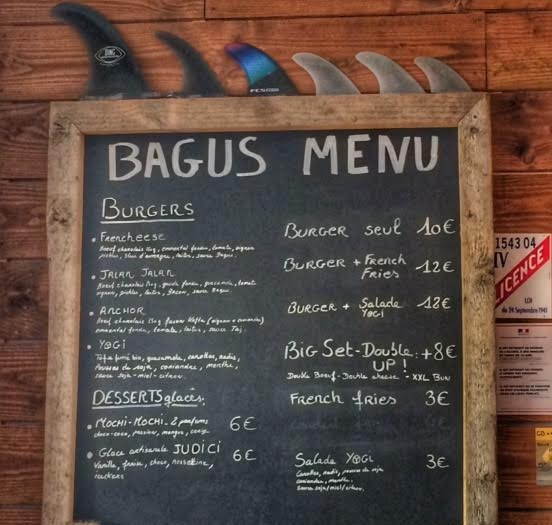 FCS
BAGUS MENU
BURGERS
• Frencheese
Boeuf charolais 150g, emmental fondu, tomate, oignon
pickles, bleu d'auvergne, laitue, sauce Bagus.
• JALAN JALAN
Boeuf charolais 150g, gouda fondu, guacamole, tomate
oignon, pickles, laitue, Bacon, sauce Bagus.
• ANCHOR
Boeuf charolais 150g façon Kefta (oignon + coriandre)
emmental fondu, tomate, laitue, sauce Taj.
• YOGI
Tofu fumé bio, guacamole, carottes, radis,
Pousses de soja, coriandre, menthe,
sauce soja-miel-citron.
DESSERTS glacés:
• MOCHI-MOCHI. 2 parfums 6€
choco-coco, passion, mangue, cerise
• Glace artisanale JUDICI 6€
Vanille, fraise, choco, noisettine,
BURGER seul 10€
BURGER + French
Fries 12€
BURGER + Salade
YOGI 12€
BIG SET-Double UP! +8€
Double Boeuf-Double cheese - XXL BUN
FRENCH fries 3€
Salade YOGI 3€
Carottes, radis, pousses de soja
coriandre, menthe.
Sauce soja/miel/citron.
1543 04
IV
LICENCE
LOI
du 24 Septembre 1941